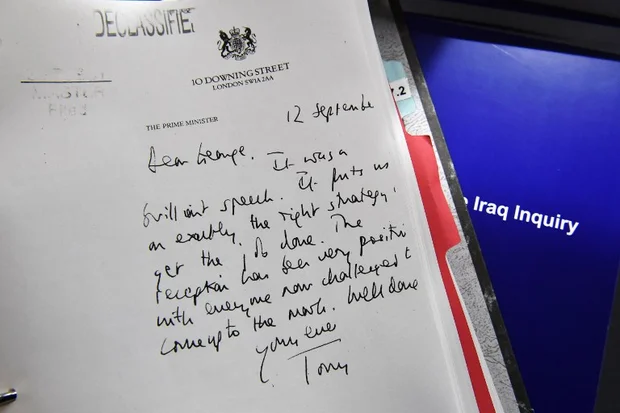 DECLASSIFIED
10 DOWNING STREET
LONDON SW1A 2AA
THE PRIME MINISTER
12 September
Dear George. It was a
brilliant speech. It puts us
on exactly the right strategy to
get the job done. The
reception has been very positive
with everyone now challenged to
come up to the mark. Well done
Yours ever
Tony
.2
Iraq Inquiry